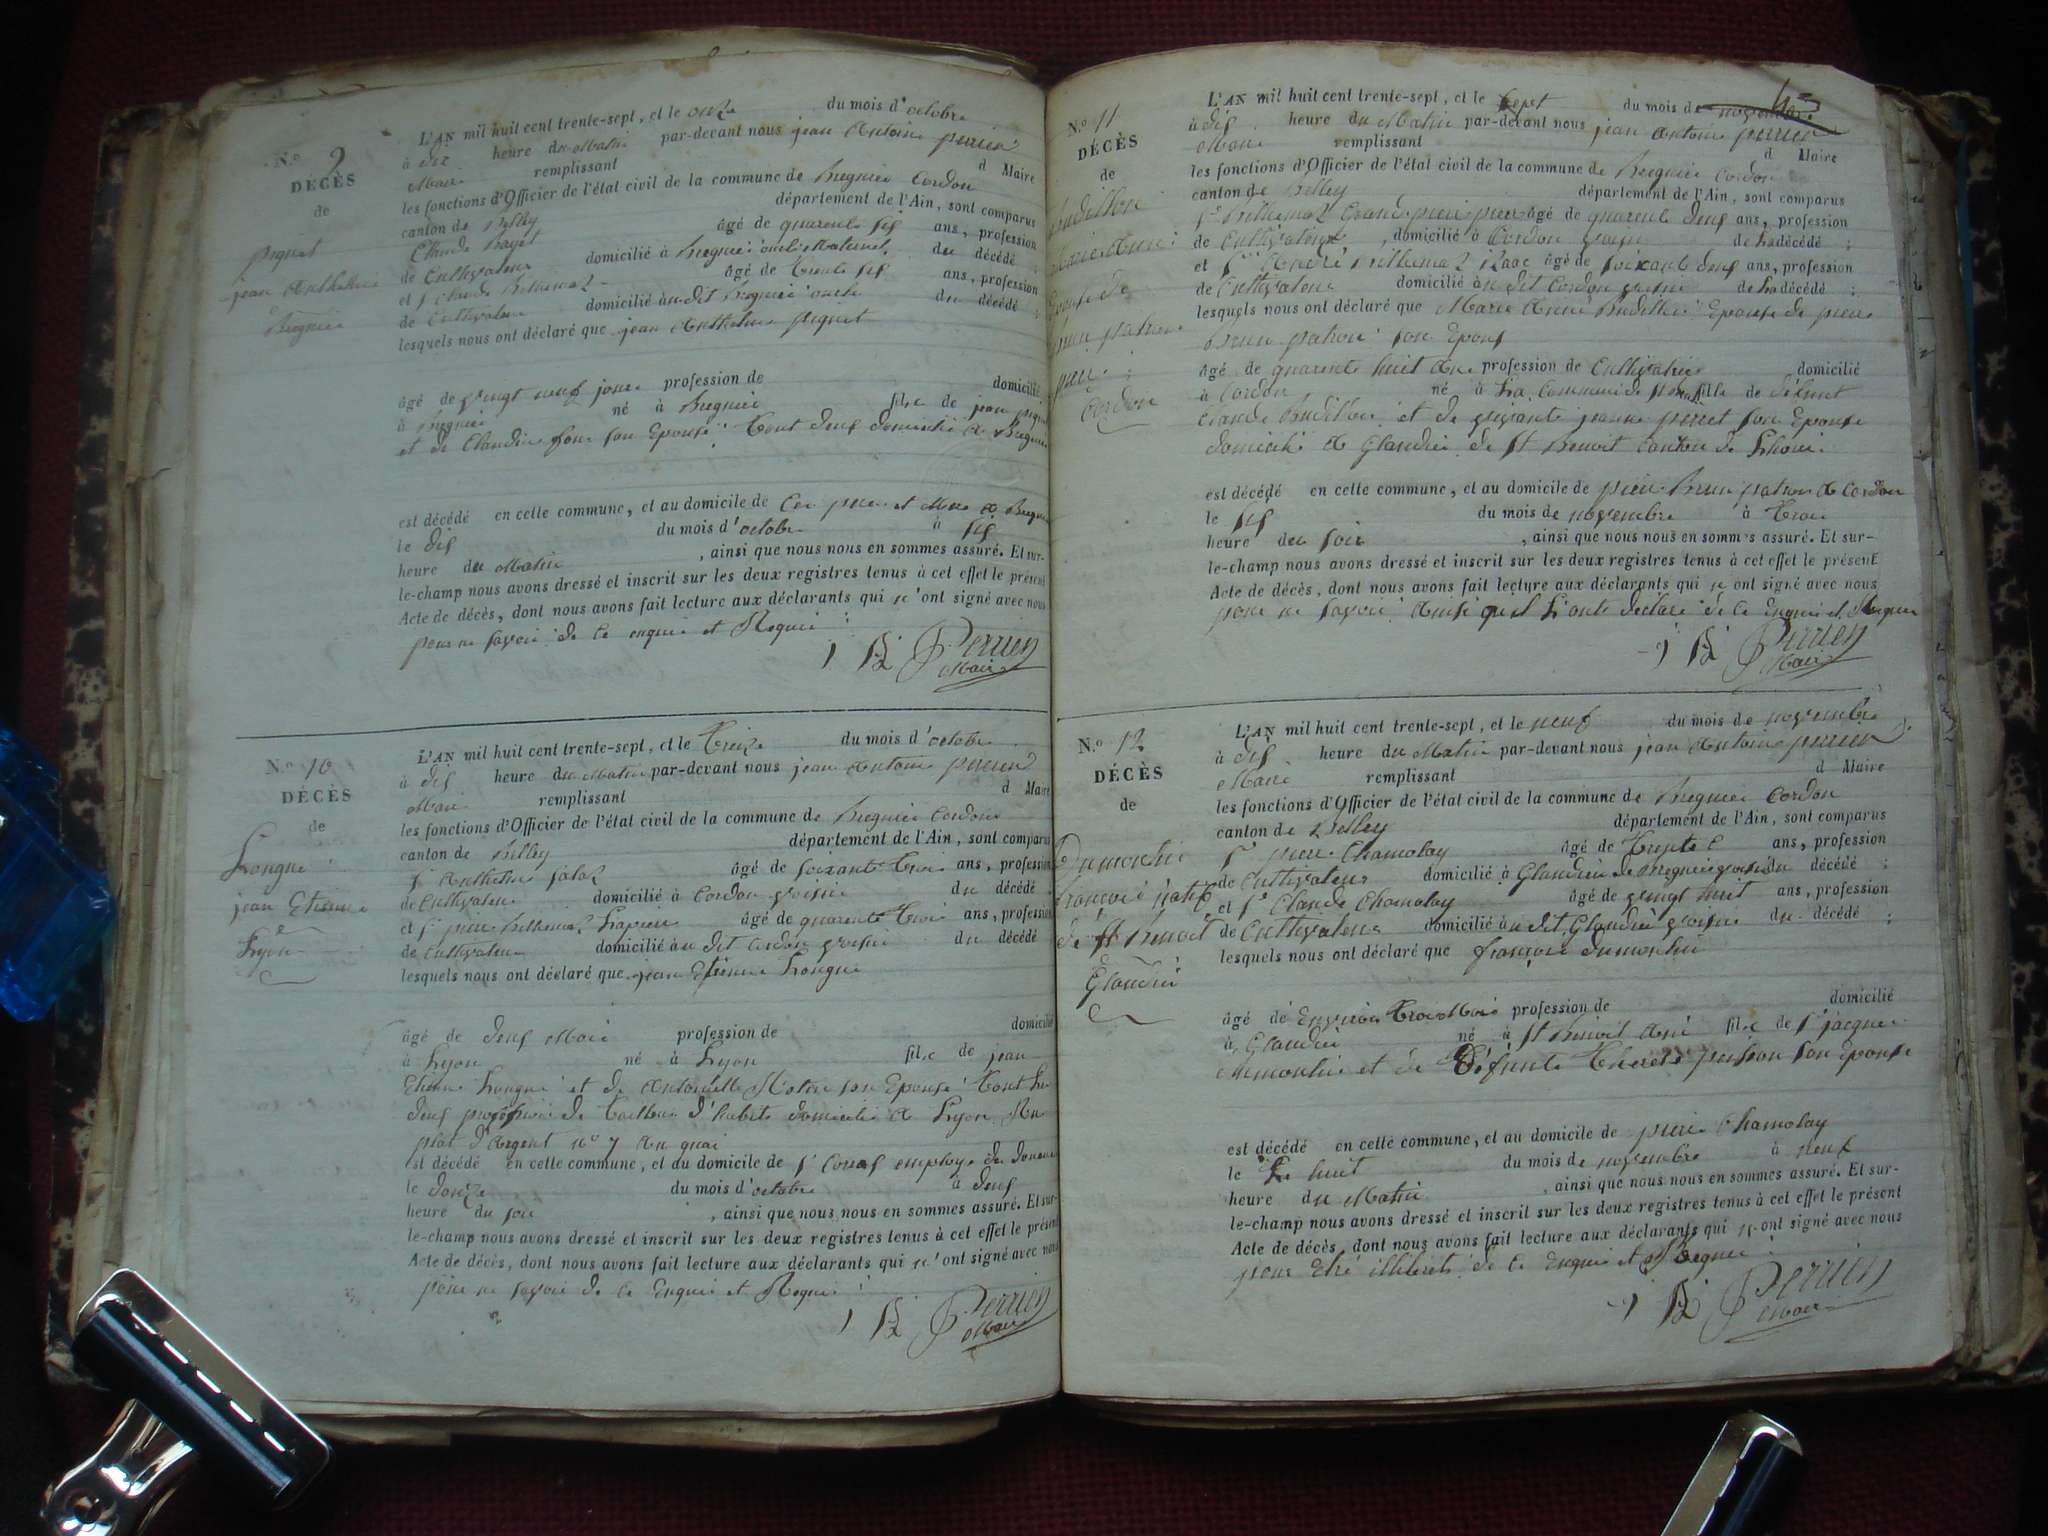 N.o 9
DÉCÈS
de
piquet
jean Anthelme
Bregnier
L'AN mil huit cent trente-sept, et le onze du mois d'octobre
à dix heure du Matin par-devant nous jean Antoine perrier
Maire remplissant d Maire
les fonctions d'Officier de l'état civil de la commune de Bregnier Cordon
canton de Belley département de l'Ain, sont comparus
Claude âgé de quarente six ans, profession
de Cultivateur domicilié à Bregnier oncle Maternel du décédé ;
et s.r Claude Bethemaz âgé de trente six ans, profession
de Cultivateur domicilié à u dit Bregnier oncle du décédé ;
lesquels nous ont déclaré que jean Anthelme piquet
âgé de vingt neuf jours profession de domicilié
à Bregnier né à Bregnier fils de jean piquet
et de Claudine son Epouse tout deux domicilié a Bregnier
est décédé en cette commune, et au domicile de Ces pere et Mere a Bregnier
le dix du mois d'octobre à six
heure du Matin , ainsi que nous nous en sommes assuré. Et sur-
le-champ nous avons dressé et inscrit sur les deux registres tenus à cet effet le présent
Acte de décès, dont nous avons fait lecture aux déclarants qui n'ont signé avec nous
pour ne savoir de ce enquis et Requis :
Perrier
Maire
N.o 10
DÉCÈS
de
Longue
jean Etienne
Lyon
L'AN mil huit cent trente-sept, et le treize du mois d'octobre
à dix heure du Matin par-devant nous jean Antoine perrier
Maire remplissant d Maire
les fonctions d'Officier de l'état civil de la commune de Bregnier Cordon
canton de Belley département de l'Ain, sont comparus
s.r Anthelme âgé de soixante trois ans, profession
de Cultivateur domicilié à Cordon voisin du décédé ;
et s.r pierre Bethemaz âgé de quarente trois ans, profession
de Cultivateur domicilié à u dit Cordon voisin du décédé
lesquels nous ont déclaré que jean Etienne Longue
âgé de deux Mois profession de domicilié
à Lyon né à Lyon fils de jean
Etienne Longue et de Antoinette son Epouse tout les
deux profession de tailleur d'habits domicilié a Lyon Rue
plat d'Argent n.o 7 Au quai
est décédé en cette commune, et au domicile de s.r employé des Douane
le douze du mois d'octobre à deux
heure du soir , ainsi que nous nous en sommes assuré. Et sur-
le-champ nous avons dressé et inscrit sur les deux registres tenus à cet effet le présent
Acte de décès, dont nous avons fait lecture aux déclarants qui n'ont signé avec nous
pour ne savoir de ce Enquis et Requis :
Perrier
Maire
N.o 11
DÉCÈS
de
Budillon
Marie Anne
Epouse de
Brun patron
pierre
Cordon
L'AN mil huit cent trente-sept, et le sept du mois de novembre
à dix heure du Matin par-devant nous jean Antoine perrier
Maire remplissant d Maire
les fonctions d'Officier de l'état civil de la commune de Bregnier Cordon
canton de Belley département de l'Ain, sont comparus
s.r Bethemaz âgé de quarente deux ans, profession
de Cultivateur , domicilié à Cordon voisin de la décédé ;
et s.r André Bethemaz Isaac âgé de soixante deux ans, profession
de Cultivateur domicilié à u dit Cordon voisin de la décédé ;
lesquels nous ont déclaré que Marie Anne Budillon Epouse de pierre
Brun patron son Epoux
âgé de quarente huit Ans profession de Cultivatrice domicilié
à Cordon né à La Commune de fille de défunt
Claude Budillon et de vivante jeanne perret son Epouse
domicilié a Glandieu de St Benoit Canton de Lhuis
est décédé en cette commune, et au domicile de pierre Brun patron a Cordon
le six du mois de novembre à trois
heure du soir , ainsi que nous nous en sommes assuré. Et sur-
le-champ nous avons dressé et inscrit sur les deux registres tenus à cet effet le présent
Acte de décès, dont nous avons fait lecture aux déclarants qui n ont signé avec nous
pour ne savoir Ainsi qu'il L'onts déclaré de ce enquis et Requis
Perrier
Maire
N.o 12
DÉCÈS
de
Dumontin
François natif
de St Benoit
Glandieu
L'AN mil huit cent trente-sept, et le neuf du mois de novembre
à dix heure du Matin par-devant nous jean Antoine perrier
Maire remplissant d Maire
les fonctions d'Officier de l'état civil de la commune de Bregnier Cordon
canton de Belley département de l'Ain, sont comparus
s.r pierre Chamolay âgé de trente ans, profession
de Cultivateur domicilié à Glandieu de Bregnier voisin du décédé ;
et s.r Claude Chamolay âgé de vingt huit ans, profession
de Cultivateur domicilié à u dit Glandieu voisin du décédé ;
lesquels nous ont déclaré que françois dumontin
âgé de Environ trois Mois profession de domicilié
à Glandieu né à St Benoit fils de s.r jacques
dumontin et de Défunte son Epouse
est décédé en cette commune, et au domicile de pierre Chamolay
le Le huit du mois de novembre à neuf
heure du Matin , ainsi que nous nous en sommes assuré. Et sur-
le-champ nous avons dressé et inscrit sur les deux registres tenus à cet effet le présent
Acte de décès, dont nous avons fait lecture aux déclarants qui n ont signé avec nous
pour Etre illiterets de ce Enquis et Requis :
Perrier
Maire